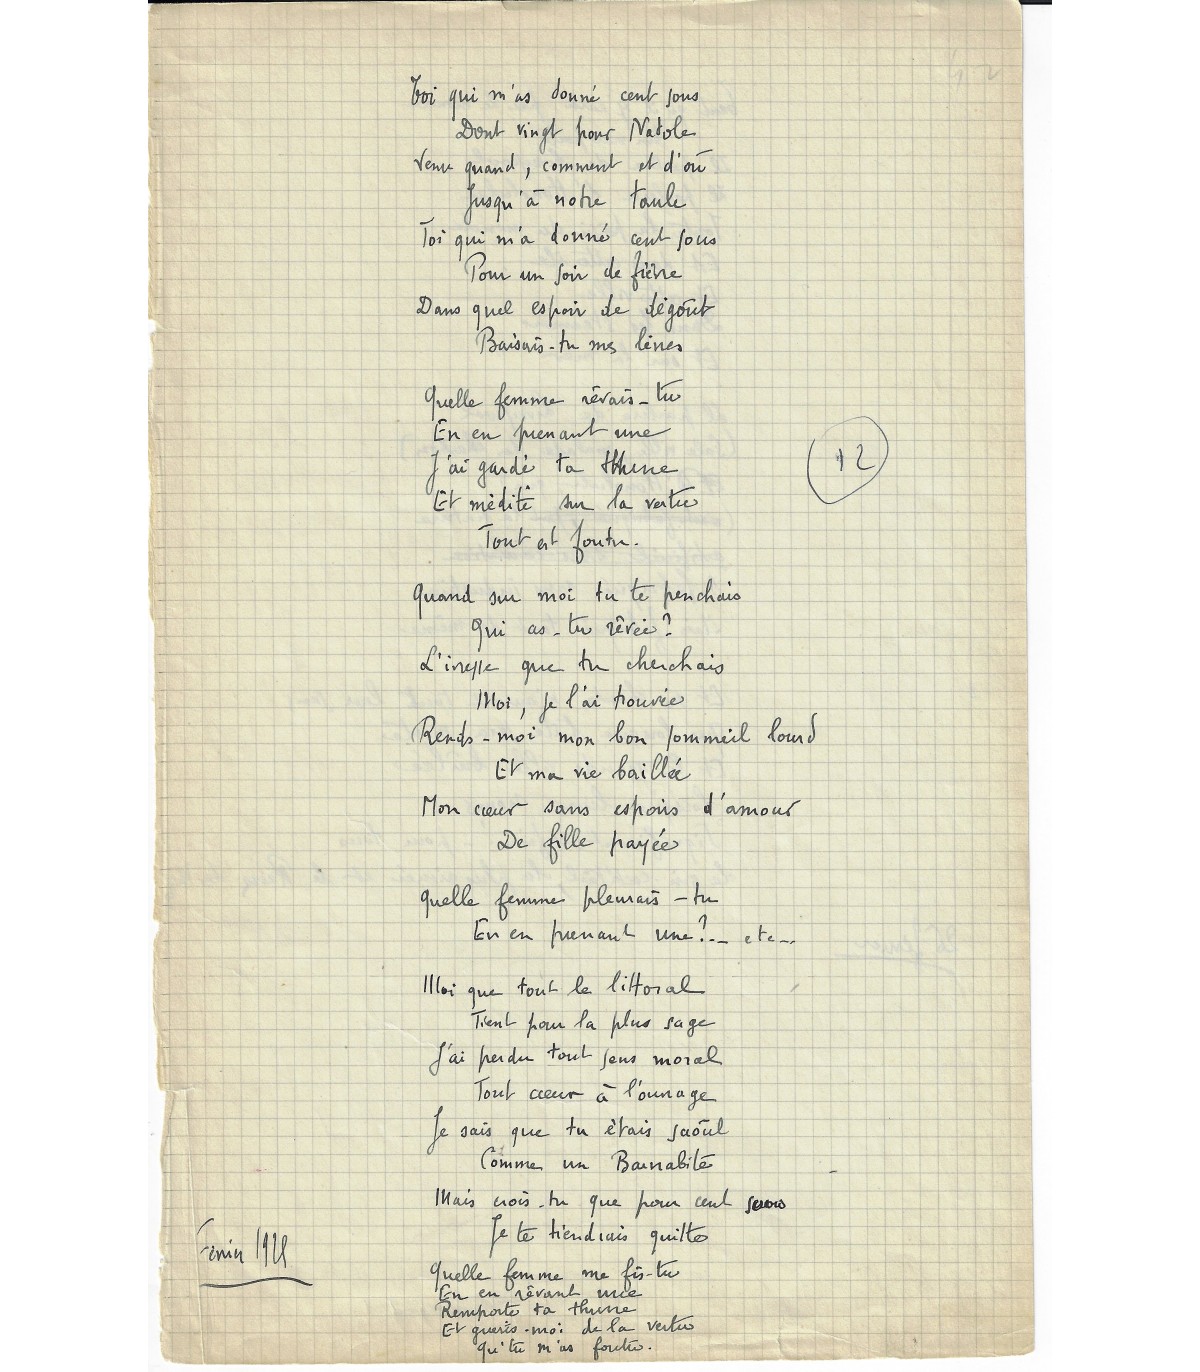 Toi qui m'as donné cent sous
Dont vingt pour Natole
Venu quand, comment et d'où
Jusqu'à notre taule
Toi qui m'a donné cent sous
Pour un soir de fièvre
Dans quel espoir de dégoût
Baisais-tu mes lèvres
Quelle femme rêvais-tu
En en prenant une
12
J'ai gardé ta thune
Et médité sur la vertu
Tout est foutu.
Quand sur moi tu te penchais
Qui as-tu rêvée?
L'ivresse que tu cherchais
Moi, je l'ai trouvée
Rends-moi mon bon sommeil lourd
Et ma vie baillée
Mon cœur sans espoirs d'amour
De fille payée
Quelle femme pleurais-tu
En en prenant une?.. etc..
Moi que tout le littoral
Tient pour la plus sage
J'ai perdu tout sens moral
Tout cœur à l'ouvrage
Je sais que tu étais saoûl
Comme un Barnabite
Mais crois-tu que pour cent sous
Je te tiendrais quitte
Février
Quelle femme me fis-tu
En en rêvant une
Remporte ta thune
Et guéris-moi de la vertu
Qu'tu m'as foutu.